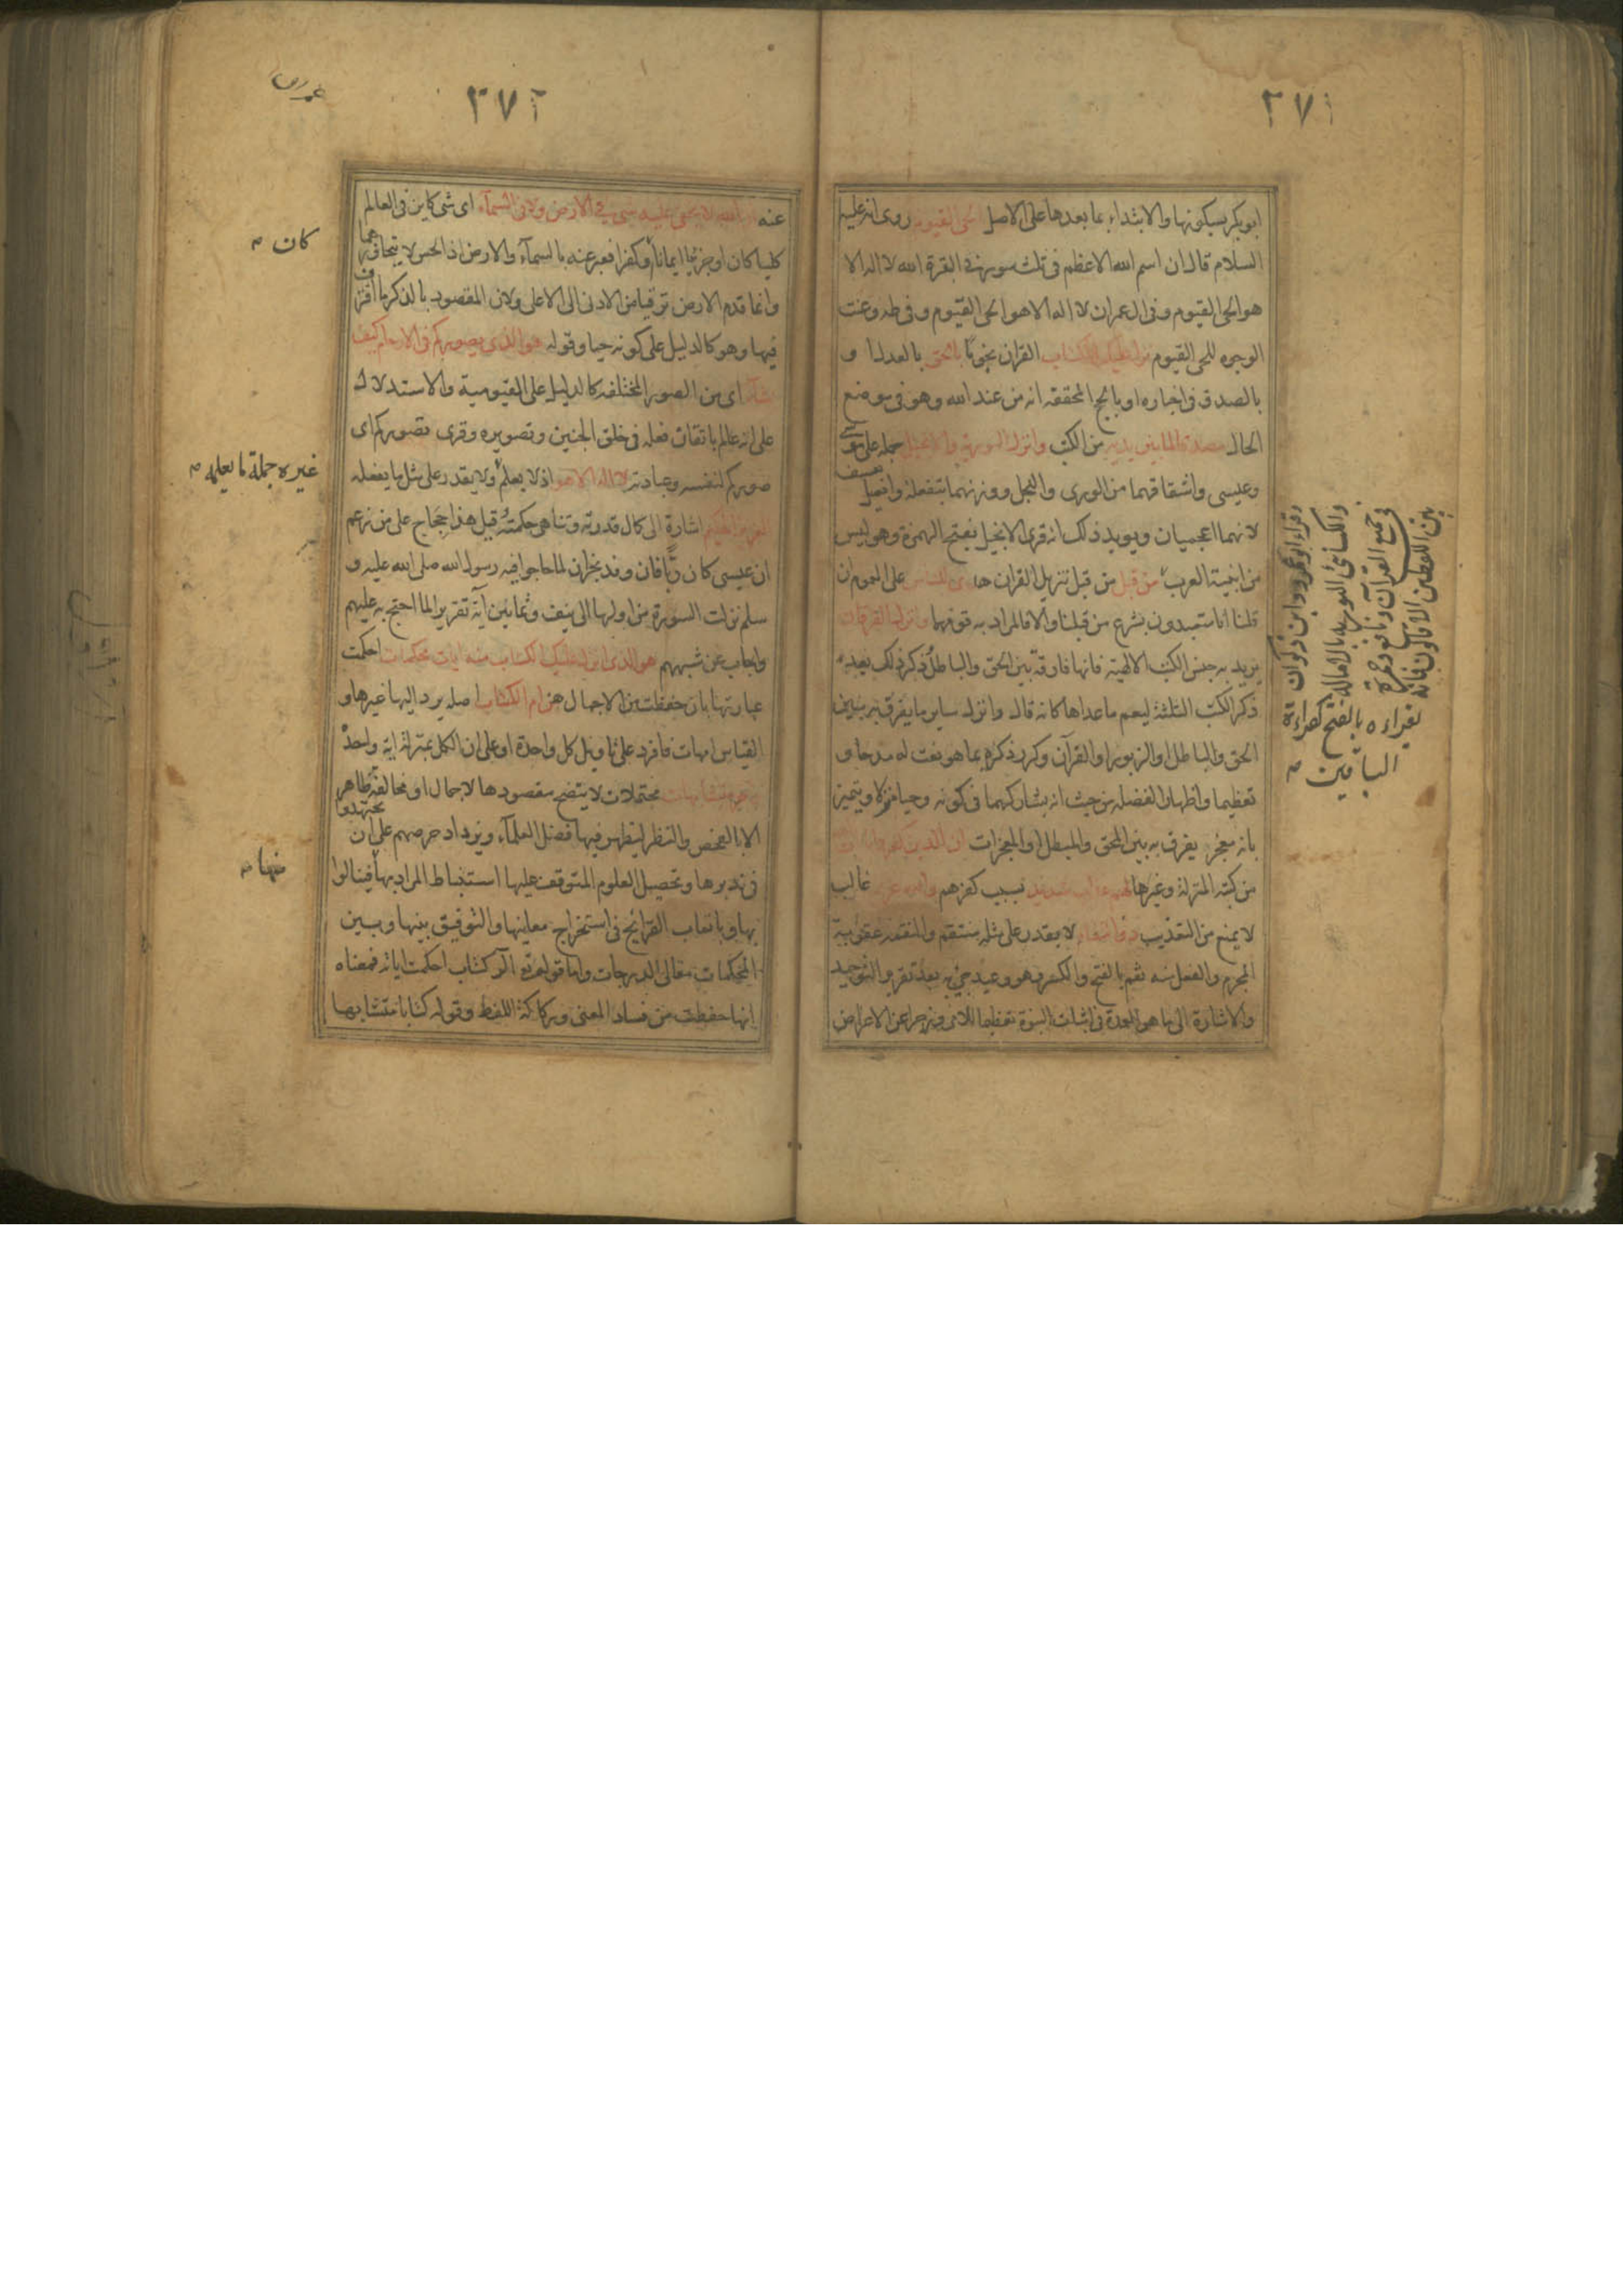 ٢٧١
ابو بكر بسكونها والابتداء بما بعدها على الاصل الحى القيوم روى انه عليه
السلام قال ان اسم الله الاعظم فى ثلث سور فى البقرة الله لا اله الا
هو الحى القيوم وفى ال عمران لا اله الا هو الحى القيوم وفى طه وعنت
الوجوه للحى القيوم نزل عليك الكتاب القران نجوما بالحق بالعدل او
بالصدق فى اخباره او بالحج المحققة انه من عند الله وهو فى موضع
الحال مصدقا لما بين يديه من الكتب وانزل التورية والانجيل جملة على موسى
وعيسى واشتقاقهما من الورى والنجل ووزنهما بتفعلة وافعيل تعسف
لانهما اعجميان ويويد ذلك انه قرى الانجيل بفتح الهمزة وهو ليس
من ابنية العرب من قبل من قبل تنزيل القران هدى للناس على العموم ان
قلنا انا متعبدون بشرع من قبلنا والا فالمراد به قومهما وانزل الفرقان
يريد به جنس الكتب الالهية فانها فارقة بين الحق والباطل ذكر ذلك بعد
ذكر الكتب الثلثة ليعم ما عداها كانه قال وانزل ساير ما يفرق به بين
الحق والباطل او الزبور او القرآن وكرر ذكره بما هو نعت له مدحا و
تعظيما واظهارا لفضله من حيث انه يشاركهما فى كونه وحيا منزلا ويتميز
بانه معجز يفرق به بين المحق والمبطل او المعجزات ان الذين كفروا بآيات الله
من كتبه المنزلة وغيرها لهم عذاب شديد بسبب كفرهم والله عزيز غالب
لا يمنع من التعذيب ذو انتقام لا يقدر على مثله منتقم والنقمة عقوبة
المجرم والفعل منه نقم بالفتح والكسر وهو وعيد جئ به بعد تقرير التوحيد
والاشارة الى ما هو العمدة فى اثبات النبوة تعظيما للامر وزجرا عن الاعراض
وقراء ابو عمرو وابن ذكوان
والكسائى التوريه بالامالة
فى جميع القرآن ونافع وحمزة
بين اللفظين الا قالون فانه
يقراءه بالفتح كقراءة
الباقين
٢٧٢
عنه ان الله لا يخفى عليه شئ فى الارض ولا فى السمآء اى شئ كاين فى العالم
كليا كان او جزئيا ايمانا او كفرا فعبر عنه بالسمآء والارض اذ الحس لا يتجاوزهما
وانما قدم الارض ترقيا من الادنى الى الاعلى ولان المقصود بالذكر ما اقترف
فيها وهو كالدليل على كونه حيا وقوله هو الذى يصوركم فى الارحام كيف
يشآء اى من الصور المختلفة كالدليل على القيومية والاستدلال
على انه عالم باتقان فعله فى خلق الجنين وتصويره وقرى تصوركم اى
صوركم لنفسه وعبادته لا اله الا هو اذ لا يعلم ولا يقدر على مثل ما يفعله
العزيز الحكيم اشارة الى كمال قدرته وتناهى حكمته قيل هذا حجاج على من زعم
ان عيسى كان ربا فان وفد نجران لما حاجوا فيه رسول الله صلى الله عليه و
سلم نزلت السورة من اولها الى نيف وثمانين آية تقريرا لما احتج به عليهم
واجاب عن شبههم هو الذى انزل عليك الكتاب منه ايات محكمات احكمت
عبارتها بان حفظت من الاجمال هن ام الكتاب اصله يرد اليها غيرها و
القياس امهات فافرد على تاويل كل واحدة او على ان الكل بمنزلة اية واحدة
واخر متشابهات محتملات لا يتضح مقصودها لاجمال او مخالفة ظاهر
الا بالفحص والنظر ليظهر فيها فضل العلمآء ويزداد حرصهم على ان يجتهدوا
فى تدبرها وتحصيل العلوم المتوقف عليها استنباط المراد بها فينالوا
بها وباتعاب القرائح فى استخراج معانيها والتوفيق بينها وبين
المحكمات معالى الدرجات واما قوله تع الر كتاب احكمت اياته فمعناه
انها حفظت من فساد المعنى وركاكة اللفظ وقوله كتابا متشابها
كان
غيره جملة ما يعلمه
منها